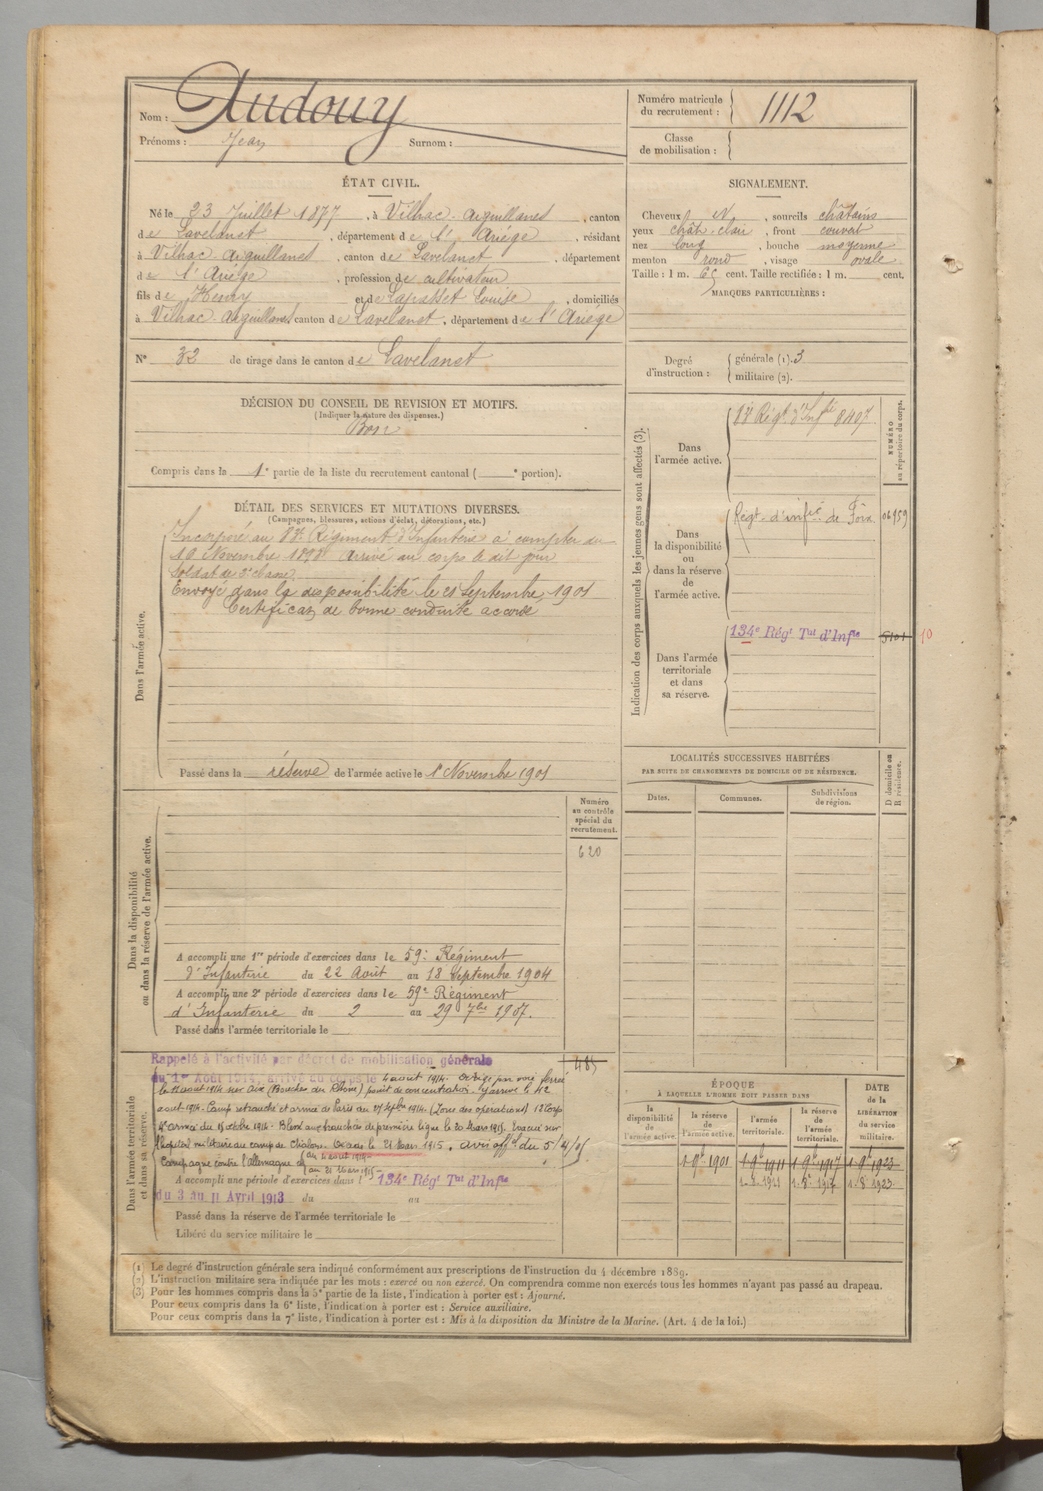 Nom : Audouy
Prénoms : Jean Surnom :
Numéro matricule du recrutement : 1112
Classe de mobilisation :
ÉTAT CIVIL.
Né le 23 Juillet 1877, à Vilhac-Aiguillanes, canton
de Lavelanet, département de l'Ariège, résidant
à Vilhac-Aiguillanes, canton de Lavelanet, département
de l'Ariège, profession de cultivateur
fils de Henry et de Lapasset Louise, domiciliés
à Vilhac-Aiguillanes, canton de Lavelanet, département de l'Ariège
N° 32 de tirage dans le canton de Lavelanet
SIGNALEMENT.
Cheveux N, sourcils châtains
yeux chât-clair, front couvert
nez long, bouche moyenne
menton rond, visage ovale
Taille : 1 m. 65 cent. Taille rectifiée : 1 m. cent.
MARQUES PARTICULIÈRES :
Degré d'instruction :
générale (1). 3
militaire (2).
DÉCISION DU CONSEIL DE REVISION ET MOTIFS.
(Indiquer la nature des dispenses.)
Bon
Compris dans la 1e partie de la liste du recrutement cantonal ( e portion).
DÉTAIL DES SERVICES ET MUTATIONS DIVERSES.
(Campagnes, blessures, actions d'éclat, décorations, etc.)
Dans l'armée active.
Incorporé au Régiment d'Infanterie à compter du
Novembre 1898 Arrivé au corps le dit jour
Soldat de 2e classe
Envoyé dans la disponibilité le 21 Septembre 1901
Certificat de bonne conduite accordé
Passé dans la réserve de l'armée active le 1 Novembre 1901
Indication des corps auxquels les jeunes gens sont affectés (3).
NUMÉRO au répertoire du corps.
Dans l'armée active.
Régt d'Infie 8407
Dans la disponibilité ou dans la réserve de l'armée active.
Régt d'infie de Foix 06959
Dans l'armée territoriale et dans sa réserve.
134e Régt Tal d'Infie 10
LOCALITÉS SUCCESSIVES HABITÉES
PAR SUITE DE CHANGEMENTS DE DOMICILE OU DE RÉSIDENCE.
D domicile ou R résidence.
Dates. Communes. Subdivisions de région.
Dans la disponibilité ou dans la réserve de l'armée active.
Numéro au contrôle spécial du recrutement.
620
A accompli une 1re période d'exercices dans le 59e Régiment
d'Infanterie du 22 Août au 18 Septembre 1904
A accompli une 2e période d'exercices dans le 59e Régiment
d'Infanterie du 2 au 29 7bre 1907.
Passé dans l'armée territoriale le
Dans l'armée territoriale et dans sa réserve.
485
Rappelé à l'activité par décret de mobilisation générale
du 1er Août 1914, arrivé au corps le 4 août 1914. Dirigé par voie ferrée
le 12 août 1914 sur Aix (Bouches du Rhône) point de concentration. Y arrive le 12
août 1914. Camp retranché et armée de Paris du 27 Septbre 1914. (Zone des opérations)
4e armée du 15 octbre 1914. Blessé aux tranchées de première ligne le 20 Mars 1915. Evacué sur
l'hôpital militaire au camp de Châlons. Décédé le 21 Mars 1915. avis offel du 5/4/15
Campagne contre l'Allemagne du 4 août 1914
au 21 Mars 1915
A accompli une période d'exercices dans l 134e Régt Tal d'Infie
du 3 au 11 Avril 1913 du au
Passé dans la réserve de l'armée territoriale le
Libéré du service militaire le
ÉPOQUE
À LAQUELLE L'HOMME DOIT PASSER DANS
DATE de la LIBÉRATION du service militaire.
la disponibilité de l'armée active. la réserve de l'armée active. l'armée territoriale. la réserve de l'armée territoriale.
1 9e 1901 1 9e 1911 1 9e 1917 1 9e 1923
(1) Le degré d'instruction générale sera indiqué conformément aux prescriptions de l'instruction du 4 décembre 1889.
(2) L'instruction militaire sera indiquée par les mots : exercé ou non exercé. On comprendra comme non exercés tous les hommes n'ayant pas passé au drapeau.
(3) Pour les hommes compris dans la 5e partie de la liste, l'indication à porter est : Ajourné.
Pour ceux compris dans la 6e liste, l'indication à porter est : Service auxiliaire.
Pour ceux compris dans la 7e liste, l'indication à porter est : Mis à la disposition du Ministre de la Marine. (Art. 4 de la loi.)